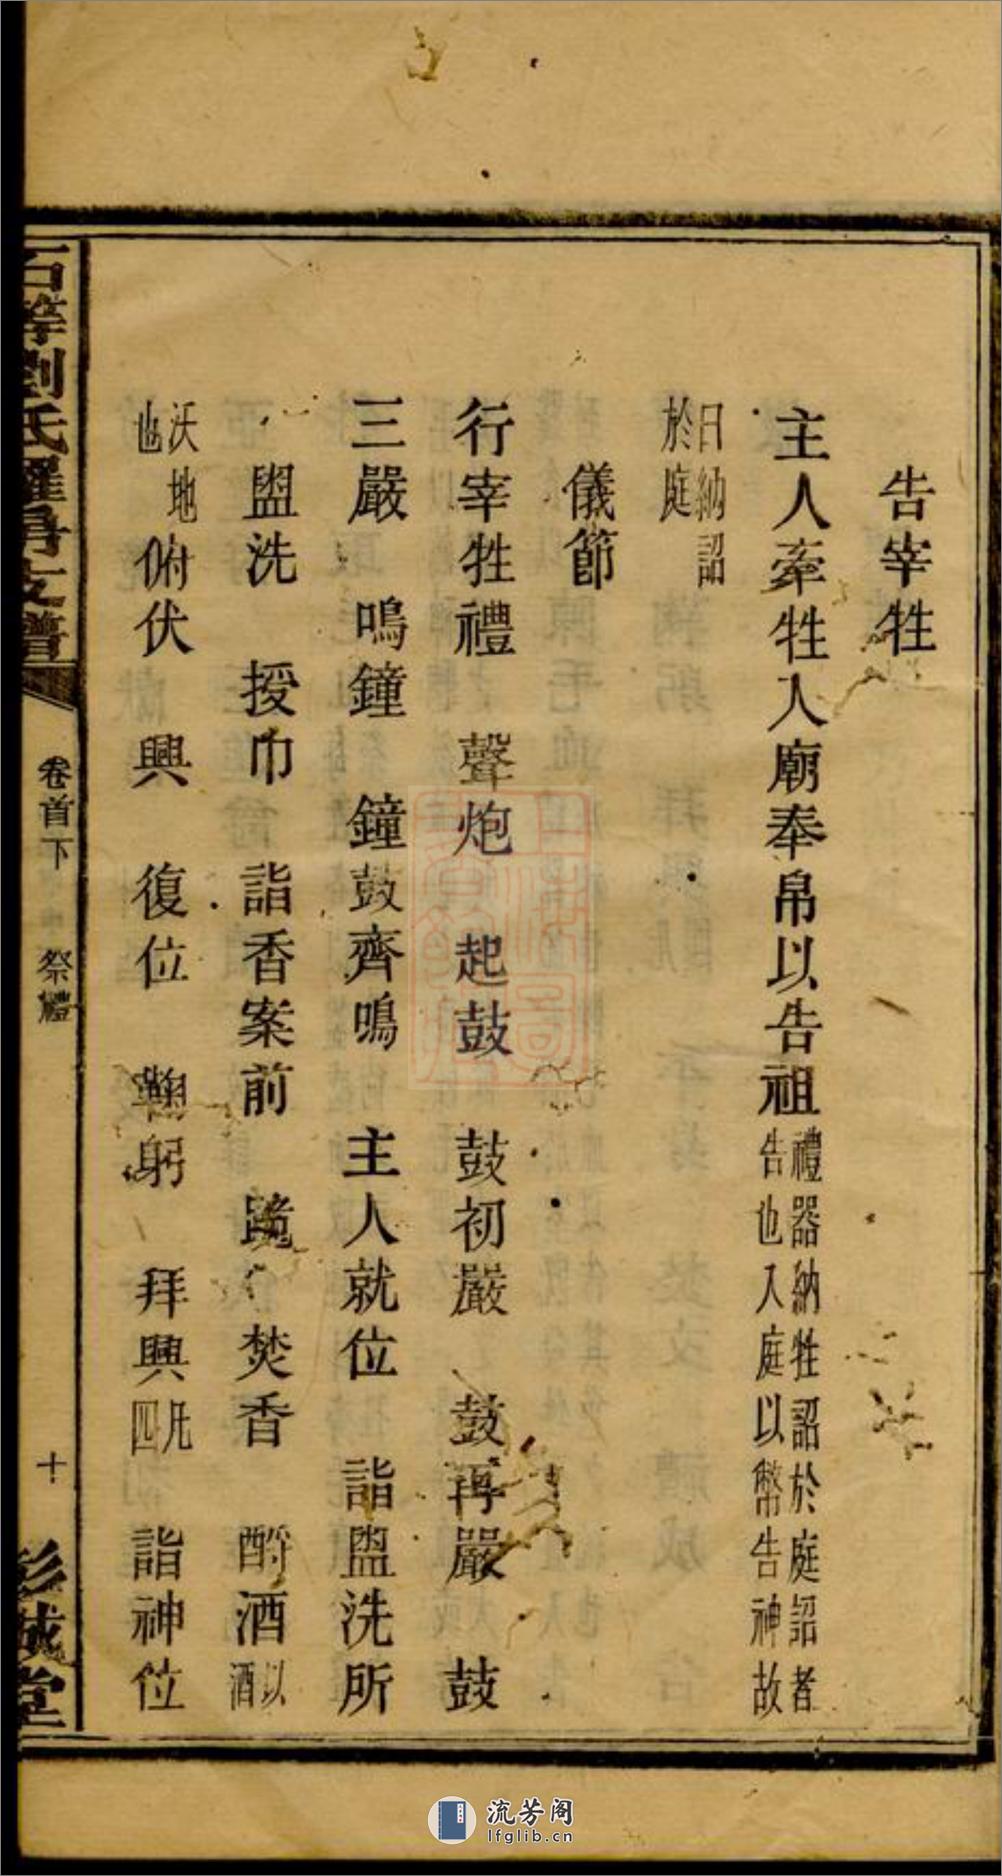 告宰牲
主人牽牲入廟奉帛以告祖禮器納牲詔於庭詔者告也入庭以幣告神故
曰納詔於庭
儀節
行宰牲禮　聲炮　起鼓　鼓初嚴　鼓再嚴　鼓
三嚴　鳴鐘　鐘鼓齊鳴　主人就位　詣盥洗所
盥洗　授巾　詣香案前　跪　焚香　酹酒以酒
沃地也　俯伏　興　復位　鞠躬　拜興凡四　詣神位
劉氏
支譜
卷首下　祭禮
十
彭城堂
流芳阁
lfglib.cn